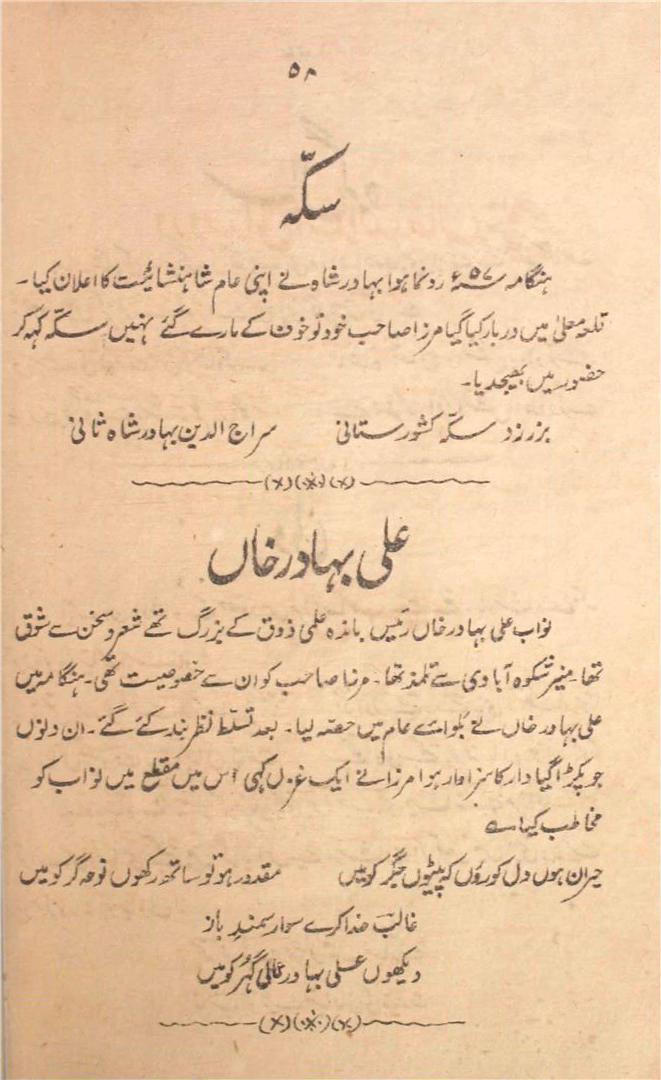 ۵۸
سکّہ
ہنگامہ ۵۷ء رونما ہوا بہادر شاہ نے اپنی عام شاہنشائیت کا اعلان کیا۔
قلعہ معلیٰ میں دربار کیا گیا مرزا صاحب خود تو خوف کے مارے گئے نہیں سکّہ کہہ کر
حضور میں بھیجدیا۔
بزر زد سکّہ کشورستانی سراج الدین بہادر شاہ ثانی
(×)(※)(×)
علی بہادر خاں
نواب علی بہادر خاں رئیس باندہ علمی ذوق کے بزرگ تھے شعر و سخن سے شوق
تھا۔ منیر شکوہ آبادی سے تلمذ تھا۔ مرزا صاحب کو ان سے خصوصیت تھی۔ ہنگامہ میں
علی بہادر خاں نے بلوائے عام میں حصہ لیا۔ بعد تسلّط نظر بند کئے گئے۔ ان دنوں
جو پکڑا گیا دار کا سزاوار ہوا مرزا نے ایک غزل کہی اس میں مقطع میں نواب کو
مخاطب کیا ہے
حیران ہوں دل کو روؤں کہ پیٹوں جگر کو میں مقدور ہو تو ساتھ رکھوں نوحہ گر کو میں
غالب خدا کرے سوار سمندِ ناز
دیکھوں علی بہادر عالی گہُر کو میں
(×)(※)(×)